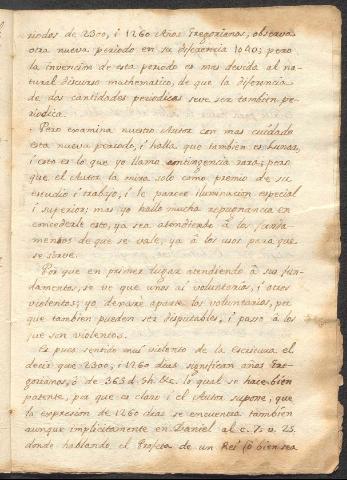 riodos de 2300, i 1260 Años Gregorianos, observa
otra nueva periodo en su diferencia 1040; pero
la invencion de esta periodo es mas devida al na-
tural discurso mathematico, de que la diferencia
de dos cantidades periodicas deve ser tambien pe-
riodica.
Pero examina nuestro Autor con mas cuidado
esta nueva periodo, i halla que tambien es Lunar,
i esto es lo que yo llamo contingencia rara; pero
que el Autor la mira solo como premio de su
estudio i trabajo, i le parece iluminacion especial
i superior; mas yo hallo mucha repugnancia en
concederle esto, ya sea atendiendo à los funda-
mentos de que se vale, ya à los usos para que
se sirve.
Por que en primer lugar atendiendo à sus fun-
damentos, se ve que unos ai voluntarios, i otros
violentos; yo dexare aparte los voluntarios, por
que tambien pueden ser disputables, i passo à los
que son violentos.
Es pues sentido mui violento de la Escritura el
decir que 2300, i 1260 dias significan años Gre-
gorianos, ò de 365 d. 5h. &c. lo qual se hace bien
patente, por que es claro i el Autor supone, que
la expresion de 1260 dias se encuentra tambien
aunque implicitamente en Daniel al c. 7. v. 25.
donde hablando el Profeta de un Rei (ò bien sea